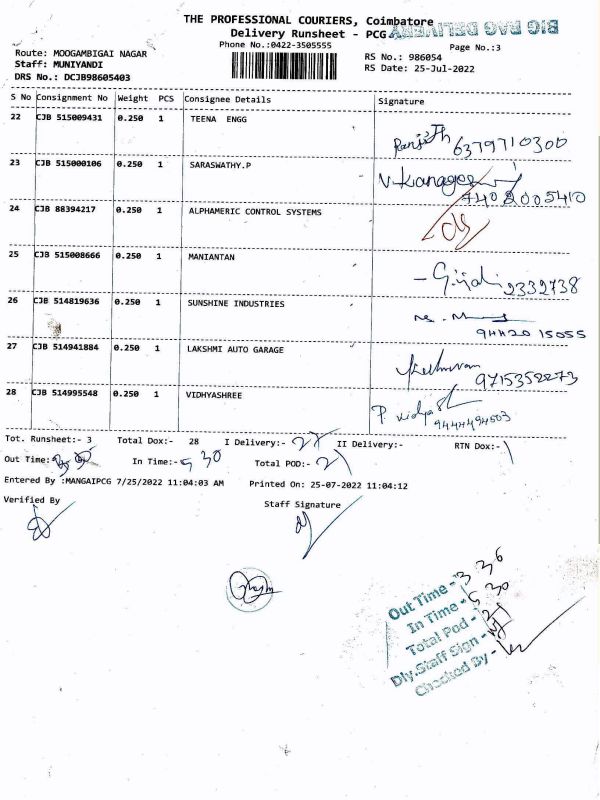 THE PROFESSIONAL COURIERS, Coimbatore
Delivery Runsheet - PCG
BIG BAG DELIVERY
Phone No.:0422-3505555
Page No.:3
Route: MOOGAMBIGAI NAGAR
RS No.: 986054
Staff: MUNIYANDI
RS Date: 25-Jul-2022
DRS No.: DCJB98605403
S No Consignment No Weight PCS Consignee Details Signature
22 CJB 515009431 0.250 1 TEENA ENGG
6379710300
23 CJB 515000106 0.250 1 SARASWATHY.P
7402005410
24 CJB 88394217 0.250 1 ALPHAMERIC CONTROL SYSTEMS
25 CJB 515008666 0.250 1 MANIANTAN
9339738
26 CJB 514819636 0.250 1 SUNSHINE INDUSTRIES
94420 15055
27 CJB 514941884 0.250 1 LAKSHMI AUTO GARAGE
28 CJB 514995548 0.250 1 VIDHYASHREE
Tot. Runsheet:- 3 Total Dox:- 28 I Delivery:- II Delivery:- RTN Dox:-
Out Time: In Time:- 5 30 Total POD:-
Entered By :MANGAIPCG 7/25/2022 11:04:03 AM Printed On: 25-07-2022 11:04:12
Verified By Staff Signature
Out Time - 3 36
In Time - 5 30
Total Pod -
Dly.Staff Sign -
Checked By -